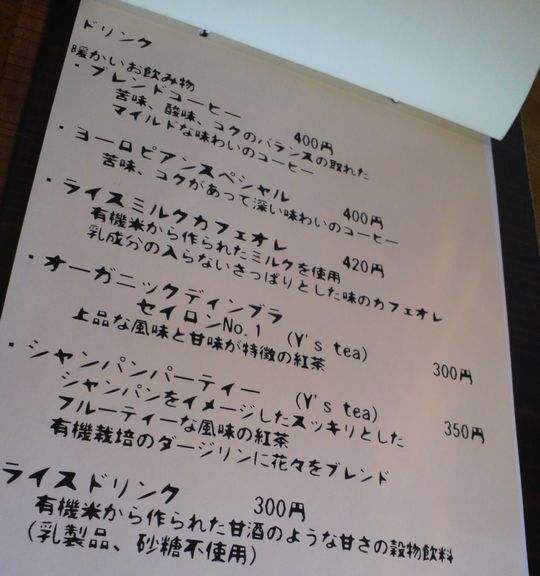 ドリンク
暖かいお飲み物
・ブレンドコーヒー 400円
苦味、酸味、コクのバランスの取れた
マイルドな味わいのコーヒー
・ヨーロピアンスペシャル 400円
苦味、コクがあって深い味わいのコーヒー
・ライスミルクカフェオレ 420円
有機米から作られたミルクを使用
乳成分の入らないさっぱりとした味のカフェオレ
・オーガニックディンブラ
セイロンNo.1 (Y's tea) 300円
上品な風味と甘味が特徴の紅茶
・シャンパンパーティー (Y's tea) 350円
シャンパンをイメージしたスッキリとした
フルーティーな風味の紅茶
有機栽培のダージリンに花々をブレンド
ライスドリンク 300円
有機米から作られた甘酒のような甘さの穀物飲料
(乳製品、砂糖不使用)